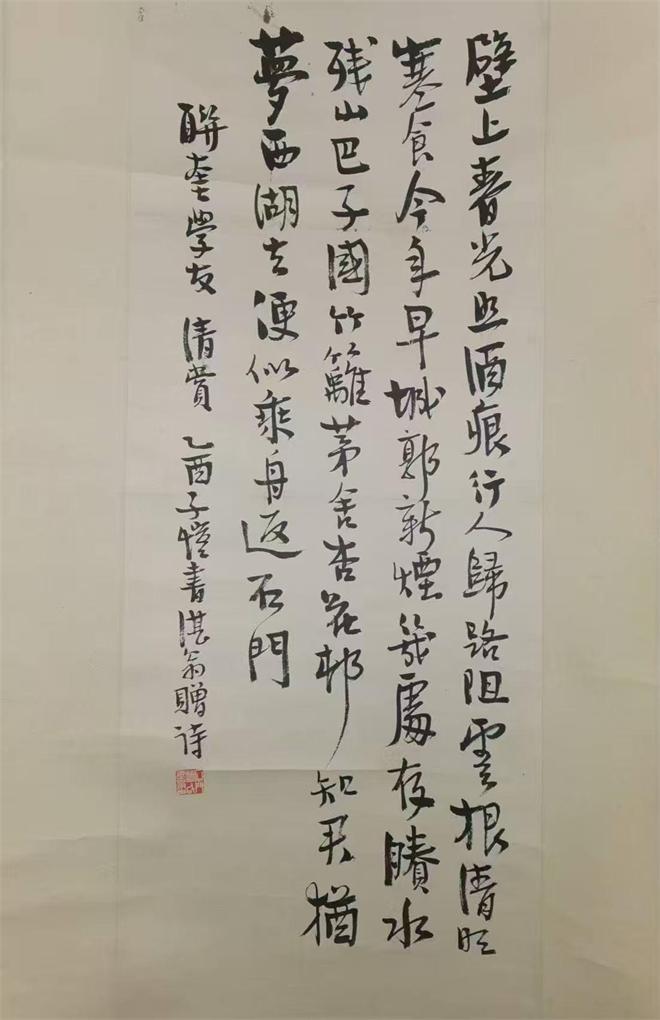 壁上春光照酒痕行人歸路阻雲根清明
寒食今年早城郭新煙幾處存賸水
残山巴子國竹籬茅舍杏花邨知君猶
夢西湖去便似乘舟返石門
聨奎學友 清賞 乙酉子愷書湛翁贈诗